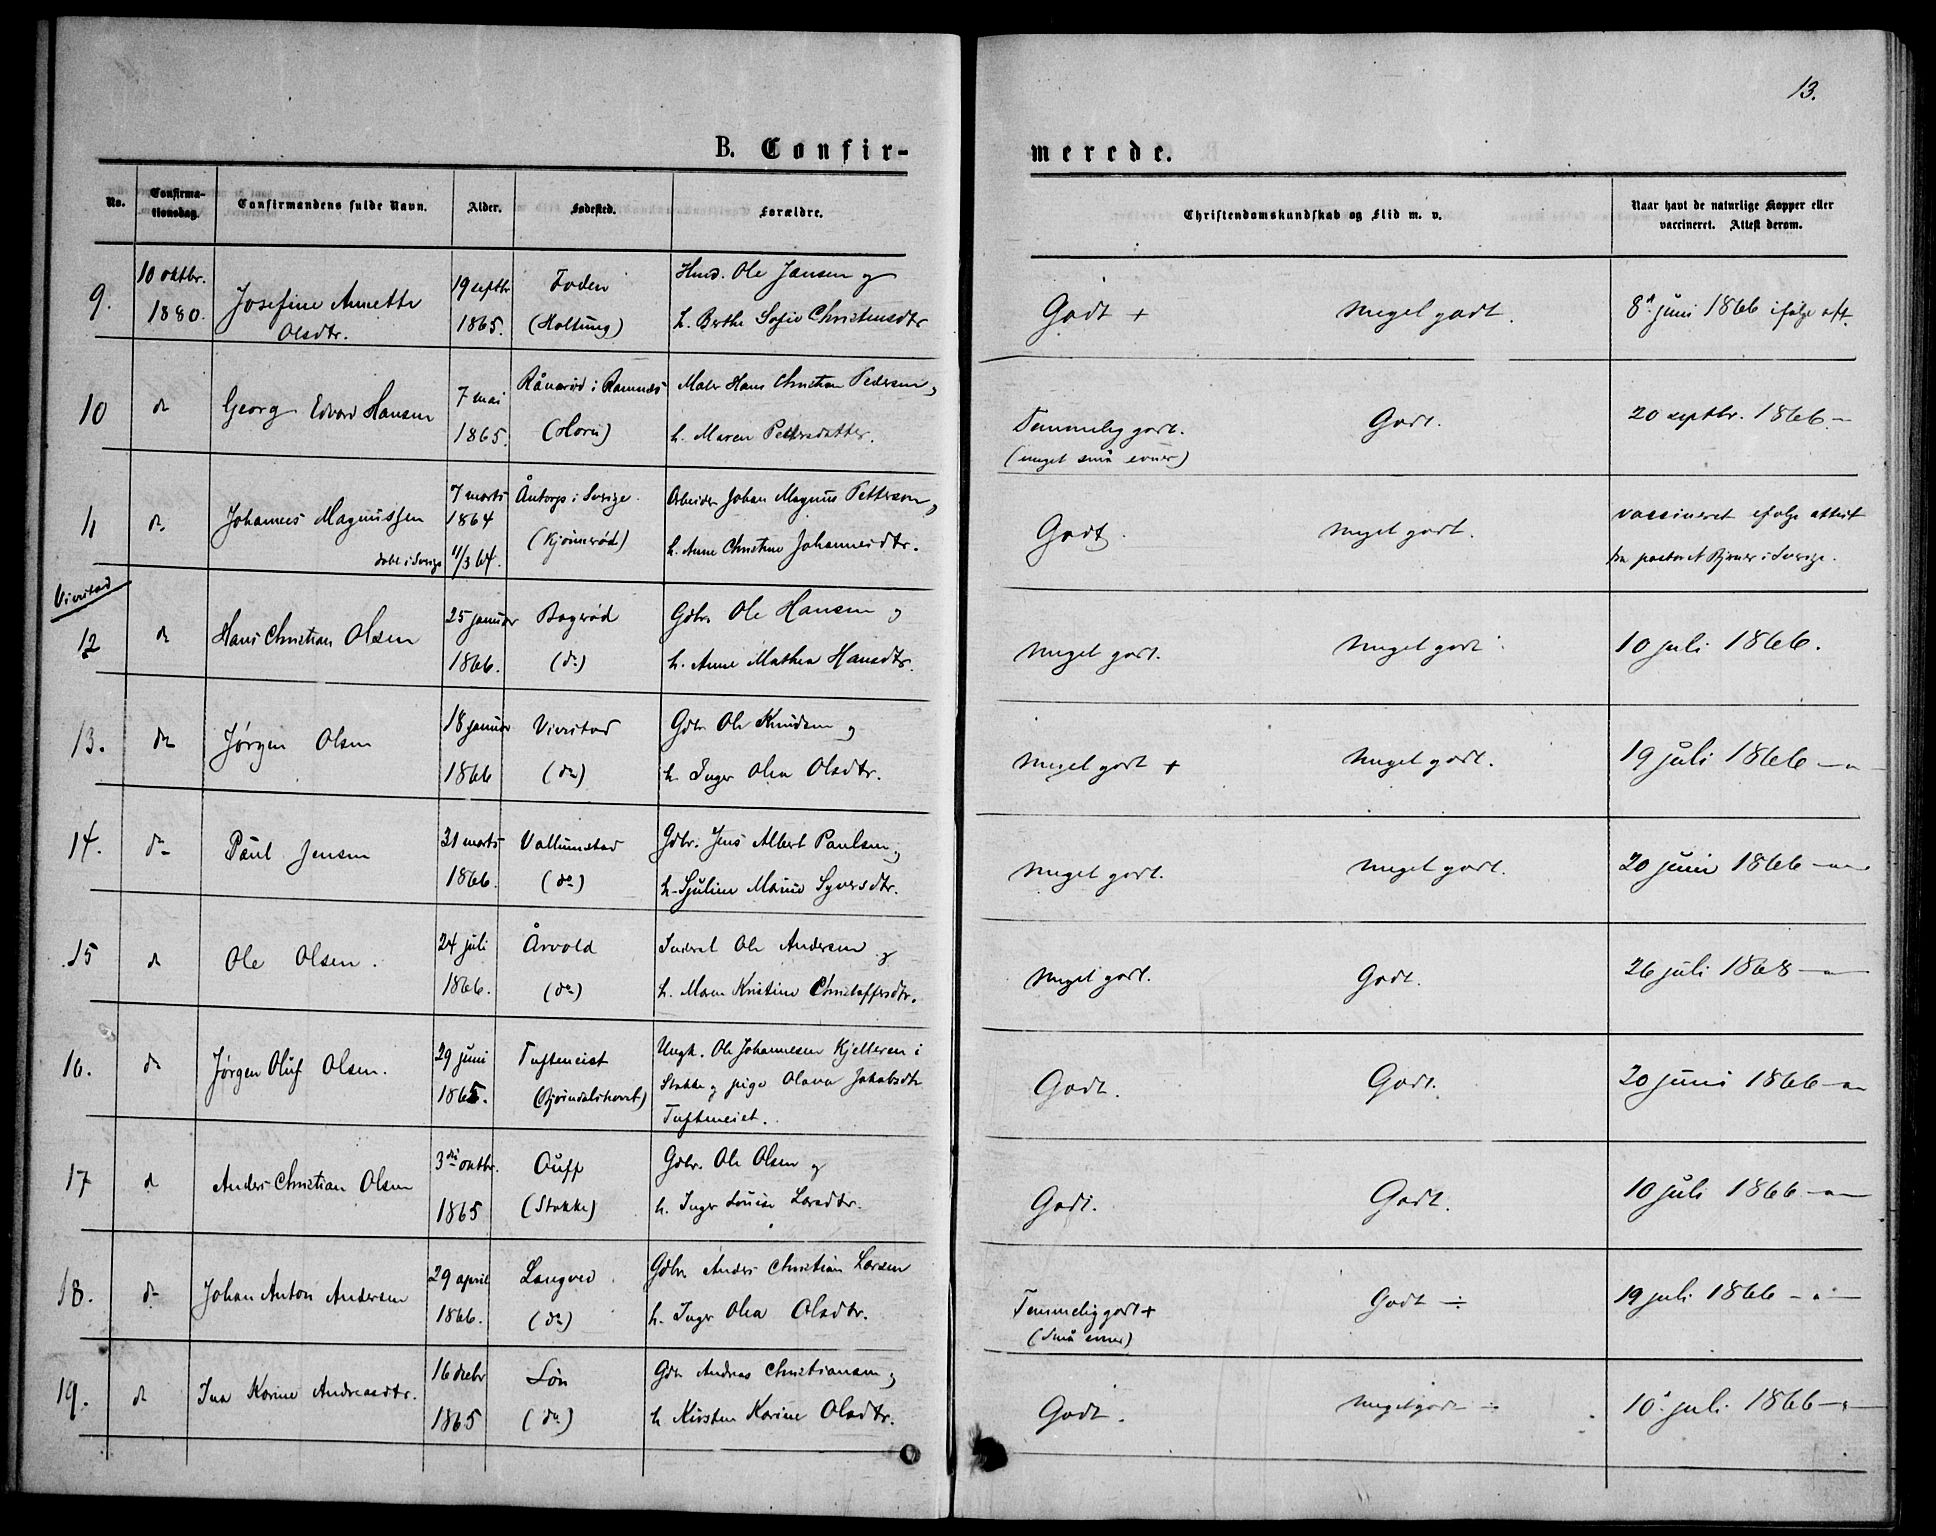 13.
B. Confir-
merede.
No.
Confirma-
tionsdag.
Confirmandens fulde Navn.
Alder.
Fødested.
Forældre.
Christendomskundskab og Flid m. v.
Naar havt de naturlige Kopper eller
vaccineret. Attest derom.
9.
10 oktbr.
1880.
Josefine Annette
Olsdtr.
19 septbr
1865.
Foden
(Haltung)
Husd. Ole Jansen og
h. Berthe Sofie Christensdtr
Godt +
Meget godt.
8d juni 1866 ifølge att.
10
do
Georg Edvard Hansen
7 mai
1865.
Rånerød i Ramnes
(Horn)
Maler Hans Christian Pedersen og
h. Maren Pettersdatter.
Temmelig godt.
(meget små evner)
Godt.
20 septbr. 1866 –
11
do
Johannes Magnussen
døbt i Sverige
7 marts
1864
11/3 64.
Åntorp i Sverige.
(Kjønnerød)
Arbeider Johan Magnus Petterson og
h. Anne Christine Johannesdtr.
Godt.
Meget godt.
vaccineret ifølge attest
fra pastor A. i Sverige.
Vivestad
12
do
Hans Christian Olsen
25 januar
1866.
Bogerød
(do)
Gdbr. Ole Hansen og
h. Anne Mathea Hansdtr.
Meget godt.
Meget godt.
10 juli 1866.
13.
do
Jørgen Olsen
18 januar
1866
Vivestad
(do)
Gdbr Ole Knudsen og
h. Inger Olea Olsdtr.
Meget godt +
Meget godt.
19 juli 1866 –"–
14.
do
Paul Jensen
31 marts
1866.
Vallumstad
(do)
Gdbr. Jens Albert Paulsen og
h. Gjuline Marie Syversdtr.
Meget godt.
Meget godt.
20 juni 1866 –"–
15
do
Ole Olsen.
24 juli
1866.
Årvold
(do)
Inderst Ole Andersen og
h. Maren Kristine Christoffersdtr.
Meget godt.
Godt.
26 juli 1868 –"–
16.
do
Jørgen Oluf Olsen.
29 juni
1865.
Tufteneiet
(Bjøindalskovet)
Ungk. Ole Johannesen Kjelleren i
Stokke og pige Olava Jakobsdtr
Tufteneiet.
Godt.
Godt.
20 juni 1866 –"–
17
do
Anders Christian Olsen
3die oktbr.
1865
Auff
(Stokke)
Gdbr. Ole Olsen og
h. Inger Louise Larsdtr.
Godt.
Godt.
10 juli 1866 –"–
18.
do
Johan Anton Andersen
29 april
1866.
Langved
(do)
Gdbr Anders Christian Larsen
h. Inger Olea Olsdtr.
Temmelig godt +
(Små evner)
Godt ÷
19 juli 1866 –"–
19.
do
Ina Karine Andreasdtr.
16 decbr
1865
Løn
(do)
Gdbr Andreas Christiansen og
h. Kirsten Karine Olsdtr.
Godt.
Meget godt ÷
10d juli 1866 –"–